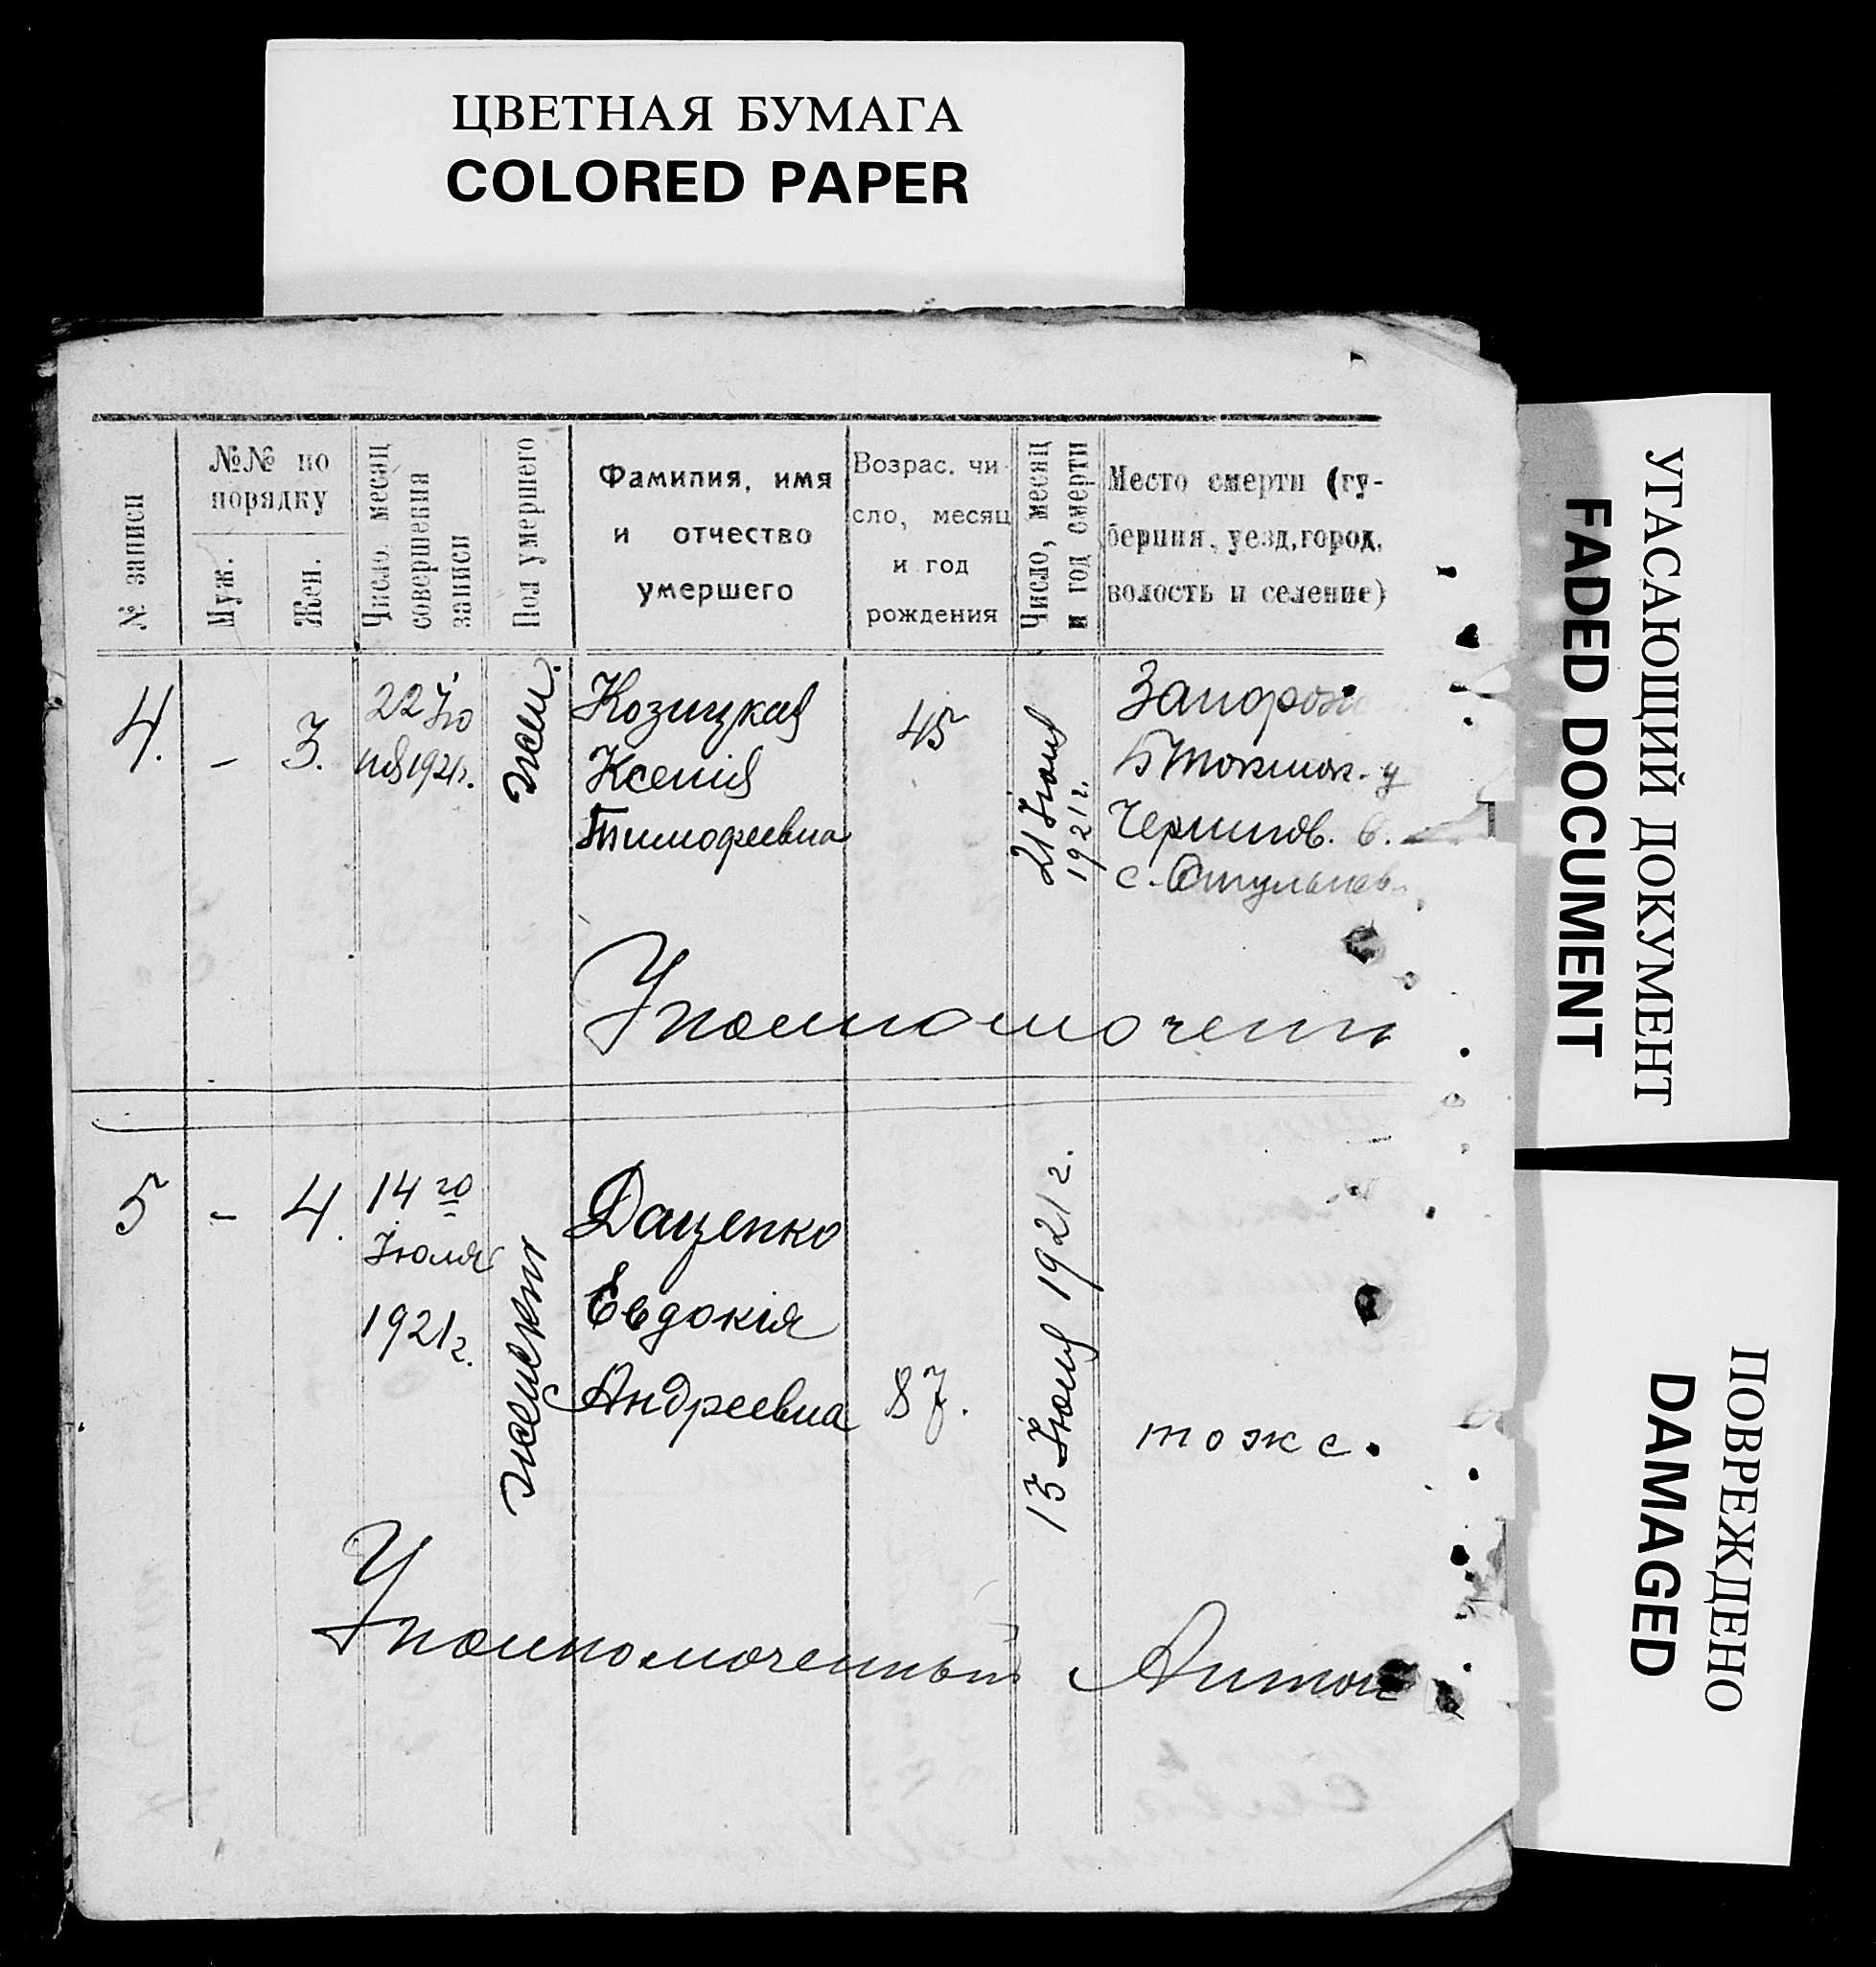 ЦВЕТНАЯ БУМАГА
COLORED PAPER
УГАСАЮЩИЙ ДОКУМЕНТ
FADED DOCUMENT
ПОВРЕЖДЕНО
DAMAGED
№ записи
№№ по
порядку
Муж.
Жен.
Число, месяц
совершения
записи
Пол умершего
Фамилия, имя
и отчество
умершего
Возрас. чи
сло, месяц
и год
рождения
Число, месяц
и год смерти
Место смерти (гу-
берния, уезд, город,
волость и селение)
4.
-
3.
22 Ію
ня 1921г.
жен.
Козицкая
Ксенія
Тимофеевна
45
21 Іюня
1921г.
Запорож
Б Токмок. у
Чернигов. в.
с.
Уполномоченн
5
-
4.
14 го
Іюля
1921г.
женскій
Даценко
Евдокія
Андреевна
87.
13 Іюня 1921г.
тоже.
Уполномоченный Антон